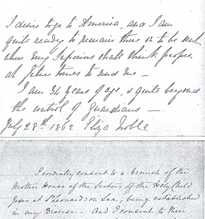 I desire to go to America, and I am
quite ready to remain there or to be sent
when my Superiors shall think proper
at future times to send me —
I am 31 years of age, & quite beyond
the control of Guardians —
July 28th 1862 Eliza Noble
I cordially consent to a branch of the
Mother House of the Sisters of the Holy Child
Jesus at St Leonards on Sea, being established
in my Diocese — And I consent to their